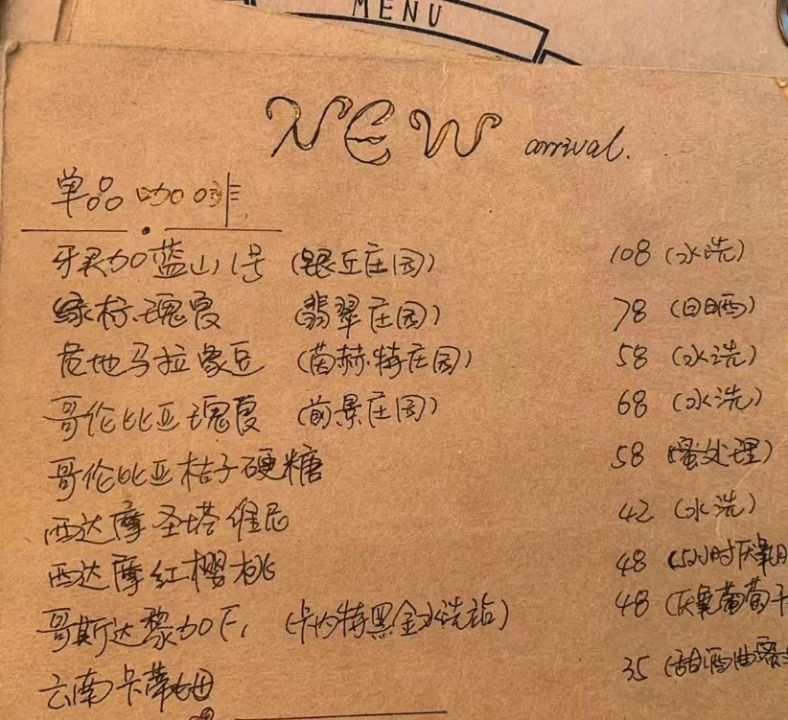 MENU
NEW arrival.
单品咖啡
牙买加蓝山1号 (银丘庄园) 108 (水洗)
绿标瑰夏 (翡翠庄园) 78 (日晒)
危地马拉象豆 (茵赫特庄园) 58 (水洗)
哥伦比亚瑰夏 (前景庄园) 68 (水洗)
哥伦比亚桔子硬糖 58 (蜜处理)
西达摩圣塔维尼 42 (水洗)
西达摩红樱桃 48 (小时厌氧日
哥斯达黎加F1 (卡内特黑金水洗站) 48 (厌氧葡萄干
云南卡蒂姆 35 (甜酒曲蜜